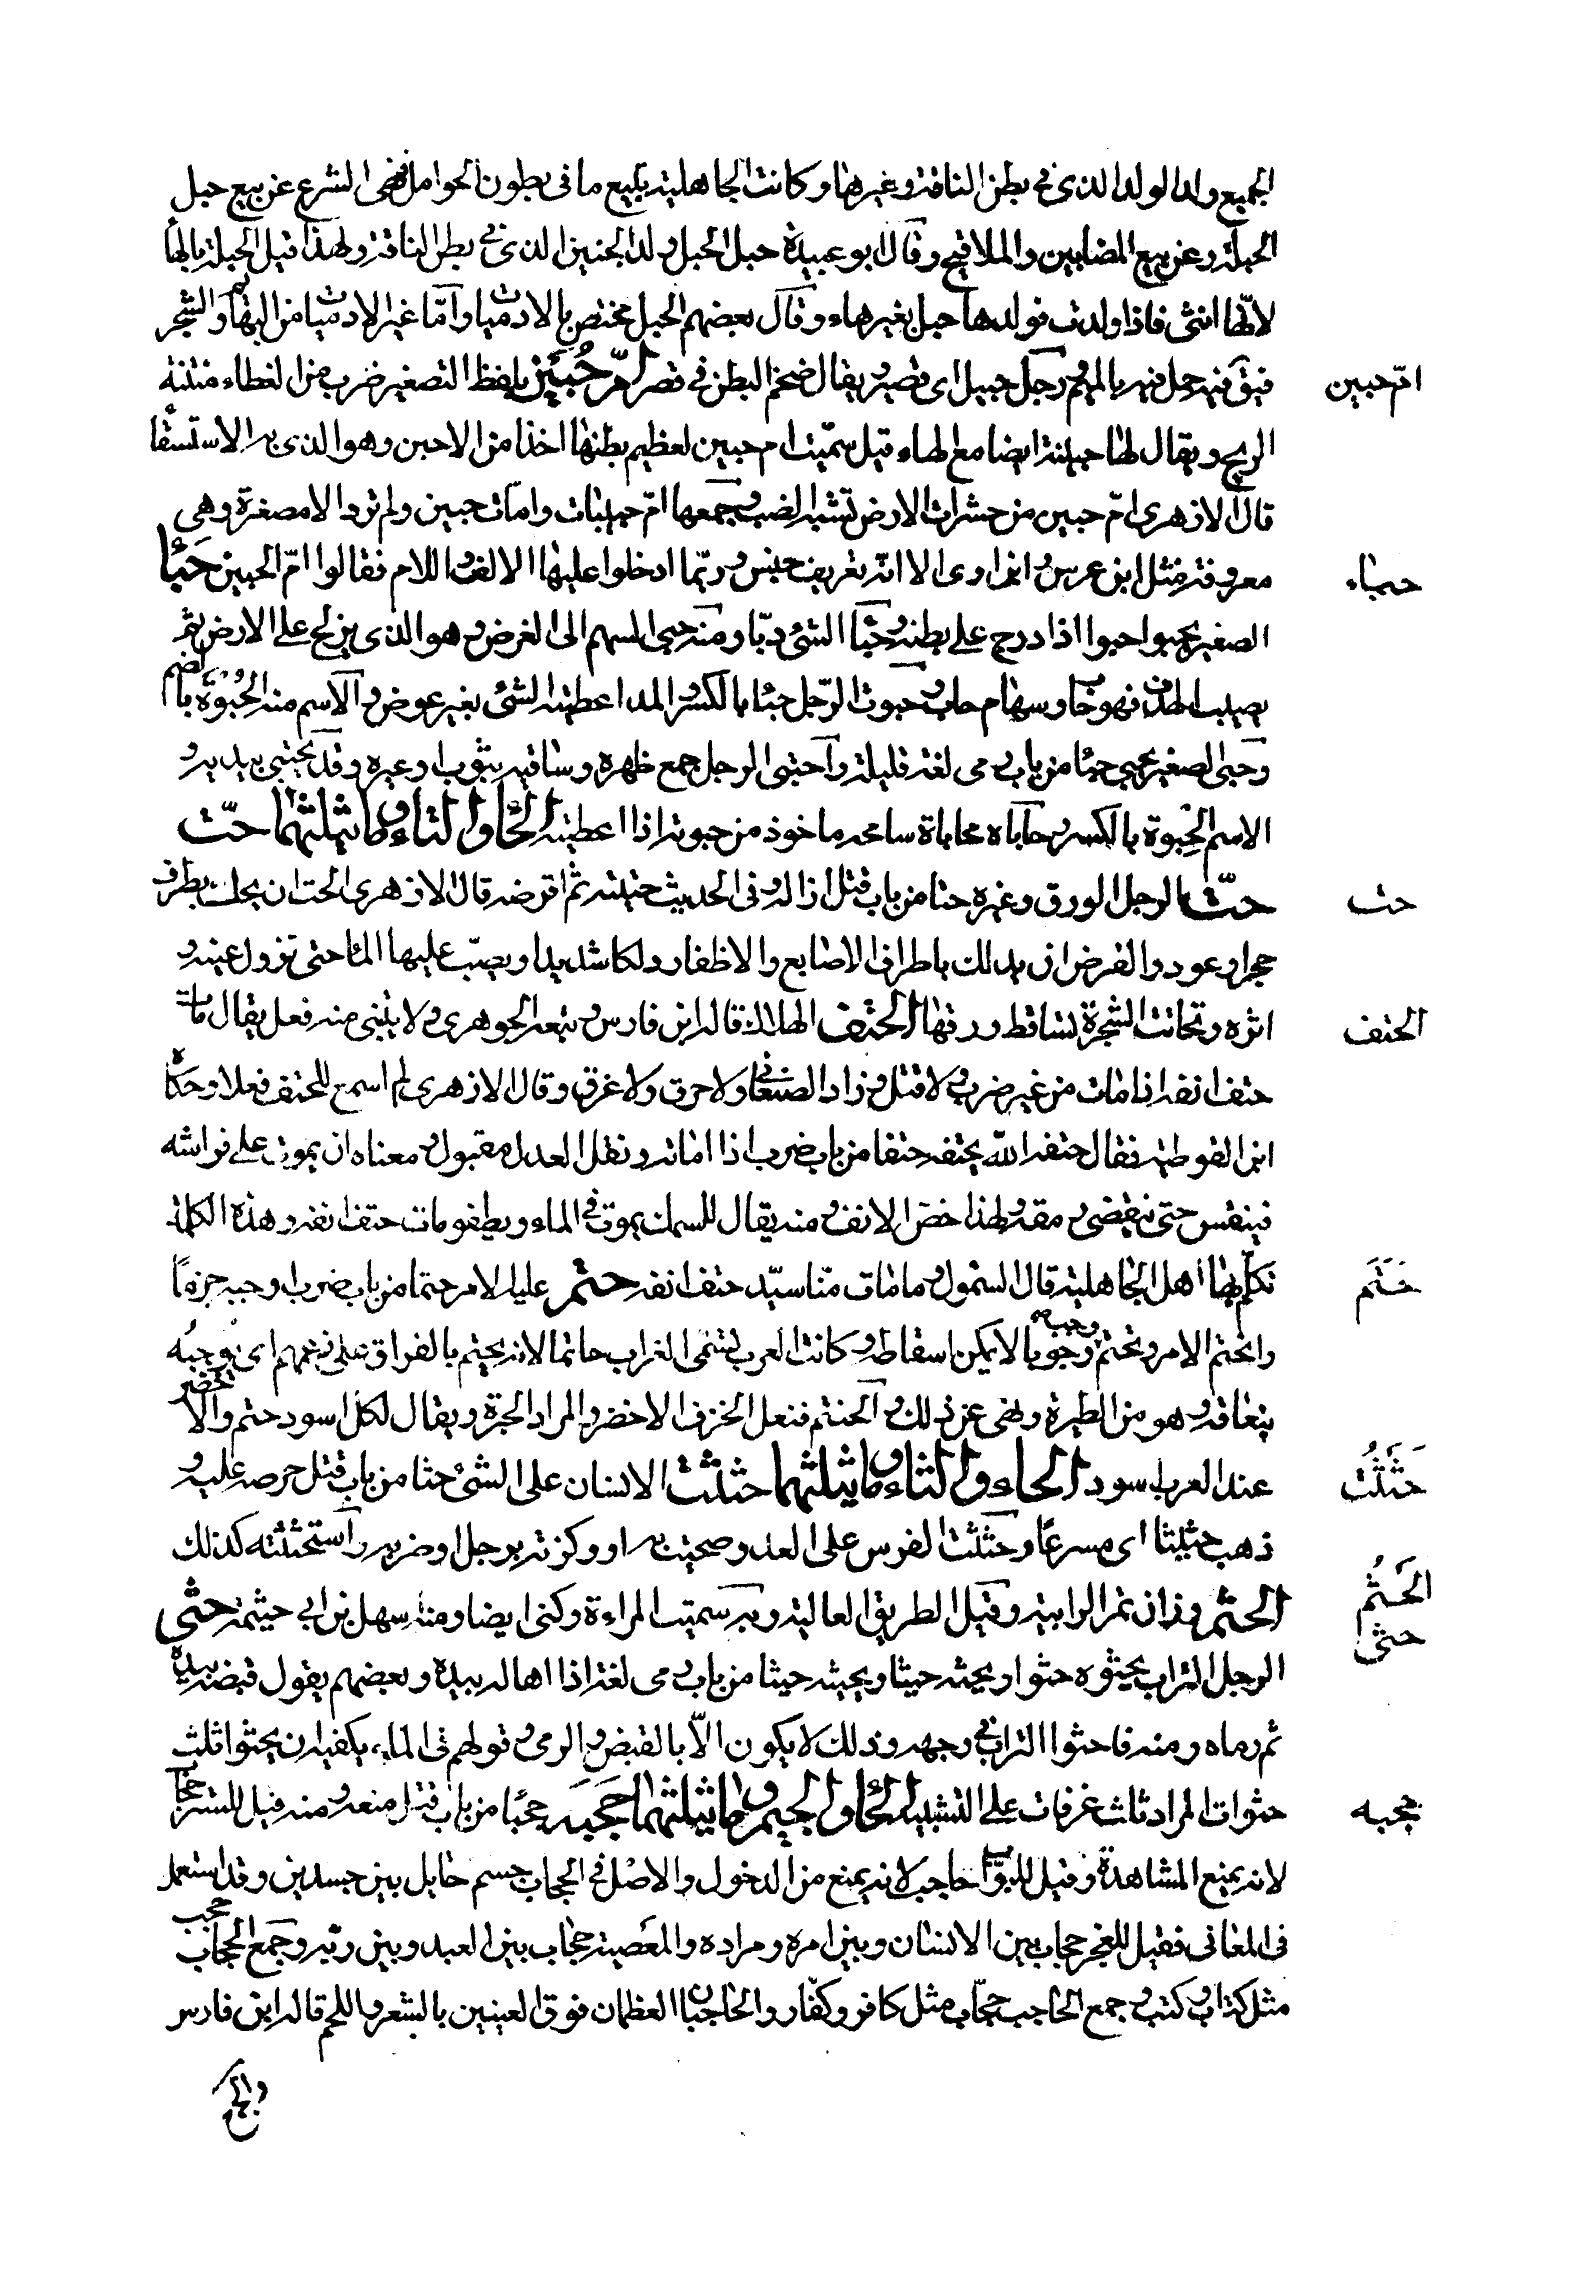 الجميع ولد الولد الذى فى بطن الناقة وغيرها وكانت الجاهلية تبيع ما فى بطون الحوامل فنهى الشرع عن بيع حبل
الحبلة وعن بيع المضامين والملاقيح وقال ابو عبيدة حبل الحبل ولد الجنين الذى فى بطن الناقة ولهذا قيل الحبلة بالهاء
لانها انثى فاذا ولدت فولدها حبل بغيرهاء وقال بعضهم الحبل مختص بالادميات وامّا غير الادميات من البهائم والشجر
فيق فيه حمل فيه بالميم ورجل حبيل اى قصير ويقال ضخم البطن فى قصر امّ حُبَين بلفظ التصغير ضرب من العظاء منتنة
امّ حبين
الريح ويقال لها حبينة ايضا مع الهاء قيل سمّيت ام حبين لعظم بطنها اخذا من الاحبن وهو الذى به الاستسقا
قال الازهرى امّ حبين من حشرات الارض تشبه الضب وجمعها امّ حبينات وامّات حبين ولم ترد الا مصغرة وهى
معرفة مثل ابن عرس وابن اوى الا انه تعريف جنس وربّما ادخلوا عليها الالف واللام فقالوا امّ الحبين حَبَا
حباء
الصغير يحبوا حبوا اذا درج على بطنه وحبَا الشئ دبّا ومنه حبى السهم الى الغرض وهو الذى يزلج على الارض ثم
يصيب الهدف فهو حاب وسهام حاب وحبوت الرّجل حبئا بالكسر والمد اعطيته الشئ بغير عوض والاسم منه الحُبْوَة بالضم
وحبى الصغير يحبى حبئا من باب رمى لغة قليلة واحتبى الرجل جمع ظهره وساقيه بثوب او غيره وقد يحتبى بيديه و
الاسم الحِبوة بالكسر وحاباه محاباة سامحه ماخوذ من حبوته اذا اعطيته الحاء والتاء وما يثلثهما حتّ
حتّ الرجل الورق وغيره حتا من باب قتل ازاله وفى الحديث حتيته ثم اقرضه قال الازهرى الحت ان يحك بطرف
حت
حجر او عود والقرض ان يدلك باطراف الاصابع والاظفار دلكا شديدا ويصبّ عليها الماء حتى تزول عينه و
اثره وتحاتت الشجرة تساقط ورقها الحتف الهلاك قاله ابن فارس وتبعه الجوهرى ولا يبنى منه فعل يقال مات
الحتف
حتف انفه اذا مات من غير ضرب ولا قتل وزاد الصنعانى ولا حرق ولا غرق وقال الازهرى لم اسمع للحتف فعلا وحكاه
ابن القوطية فقال حتفه الله يحتفه حتفا من باب ضرب اذا اماته ونقل العدل مقبول ومعناه ان يموت على فراشه
فيتنفس حتى ينقضى رمقه ولهذا خصّ الانف ومنه يقال للسمك يموت فى الماء ويطفو مات حتف انفه وهذه الكلمة
تكلّم بها اهل الجاهلية قال السمول وما مات منّا سيّد حتف انفه حتم عليه الامر حتما من باب ضرب اوجبه جزمًا
حَتَمَ
وانحتم الامر وتحتم وجب وجوبا لا يمكن اسقاطه وكانت العرب تسمى الغراب حاتما لانه يحتم بالفراق على زعمهم اى يُوجبُه
بنعاقه وهو من الطيرة ونهى عن ذلك والحنتم فنعل الخزف الاخضر والمراد الجرة ويقال لكل اسود حنتم والاخضر
عند العرب اسود الحاء والثاء وما يثلثهما حثثت الانسان على الشئ حثا من باب قتل حرصه عليه و
حَثَثْتُ
ذهب حثيثا اى مسرعًا وحثثت الفرس على العدو صحت به او وكزته برجل او ضرب واستحثثته كذلك
الحثم وزان تمر الرابية وقيل الطريق العالية وبه سميت المراءة وكنى ايضا ومنه سهل بن ابى حيثمه حثى
الحَثْمُ
حثى
الرجل التراب يحثوه حثوا ويحثه حيثا ويحيثه حيثا من باب رمى لغة اذا اهاله بيده وبعضهم يقول قبضه بيده
ثم رماه ومنه فاحثوا التراب فى وجهه وذلك لا يكون الّا بالقبض والرمى وقولهم فى الماء يكفيه ان يحثوا ثلث
حثوات المراد ثلث غرفات على التشبيه الحاء والجيم وما يثلثهما حَجَبَه حجبًا من باب قتل منعه ومنه قيل للستر حجاب
حجبه
لانه يمنع المشاهدة وقيل للبوّاب حاجب لانه يمنع من الدخول والاصل فى الحجاب جسم حايل بين جسدين وقد استعمل
فى المعانى فقيل للعجز حجاب بين الانسان وبين امره ومراده والمعصية حجاب بين العبد وبين ربّه وجمع الحجاب حجب
مثل كتاب وكتب وجمع الحاجب حجّاب مثل كافر وكفّار والحاجبان العظمان فوق العينين بالشعر واللحم قاله ابن فارس